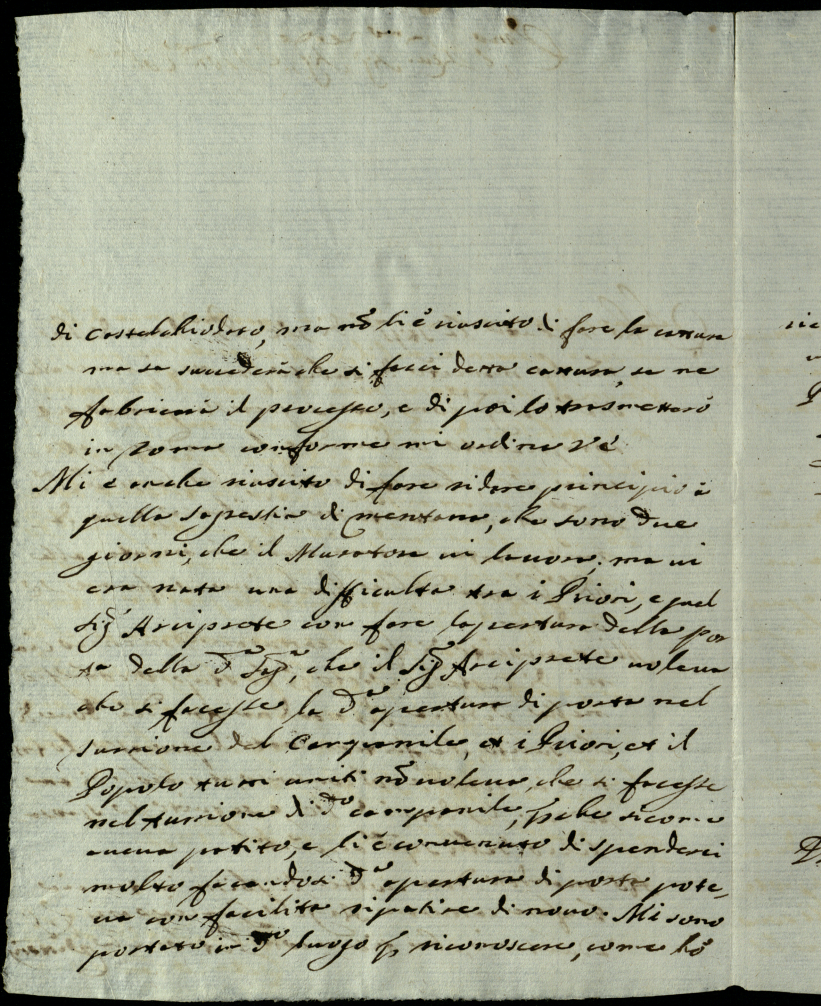 di Castelchiodato, ma nõ li è riuscito di fare la cattura
ma se succederà che si facci detta cattura, se ne
fabricarà il processo, e di poi lo trasmetterò
in Roma conforme mi ordina V.E.
Mi è anche riuscito di fare ridare principio à
quella sagrestia di Mentana, che sono due
giorni, che il Muratore ui lauora; ma ui
era nata una difficulta tra i Priori, e quel
Sigr̃ Arciprete con fare l'apertura della por
ta della da Saga, che il Sigr̃ Arciprete uoleua
che si facesse la da apertura di porta nel
turrione del Campanile, et i Priori, et il
Popolo tutti uniti nõ uoleua, che si facesse
nel turrione di do campanile, ꝑche sicome
aueua patito, e li è conuenuto di spenderci
molto facendosi da apertura di porta pote,
ua con facilita ripatire di nouo. Mi sono
portato in do luogo ꝑ riconoscere, come hò